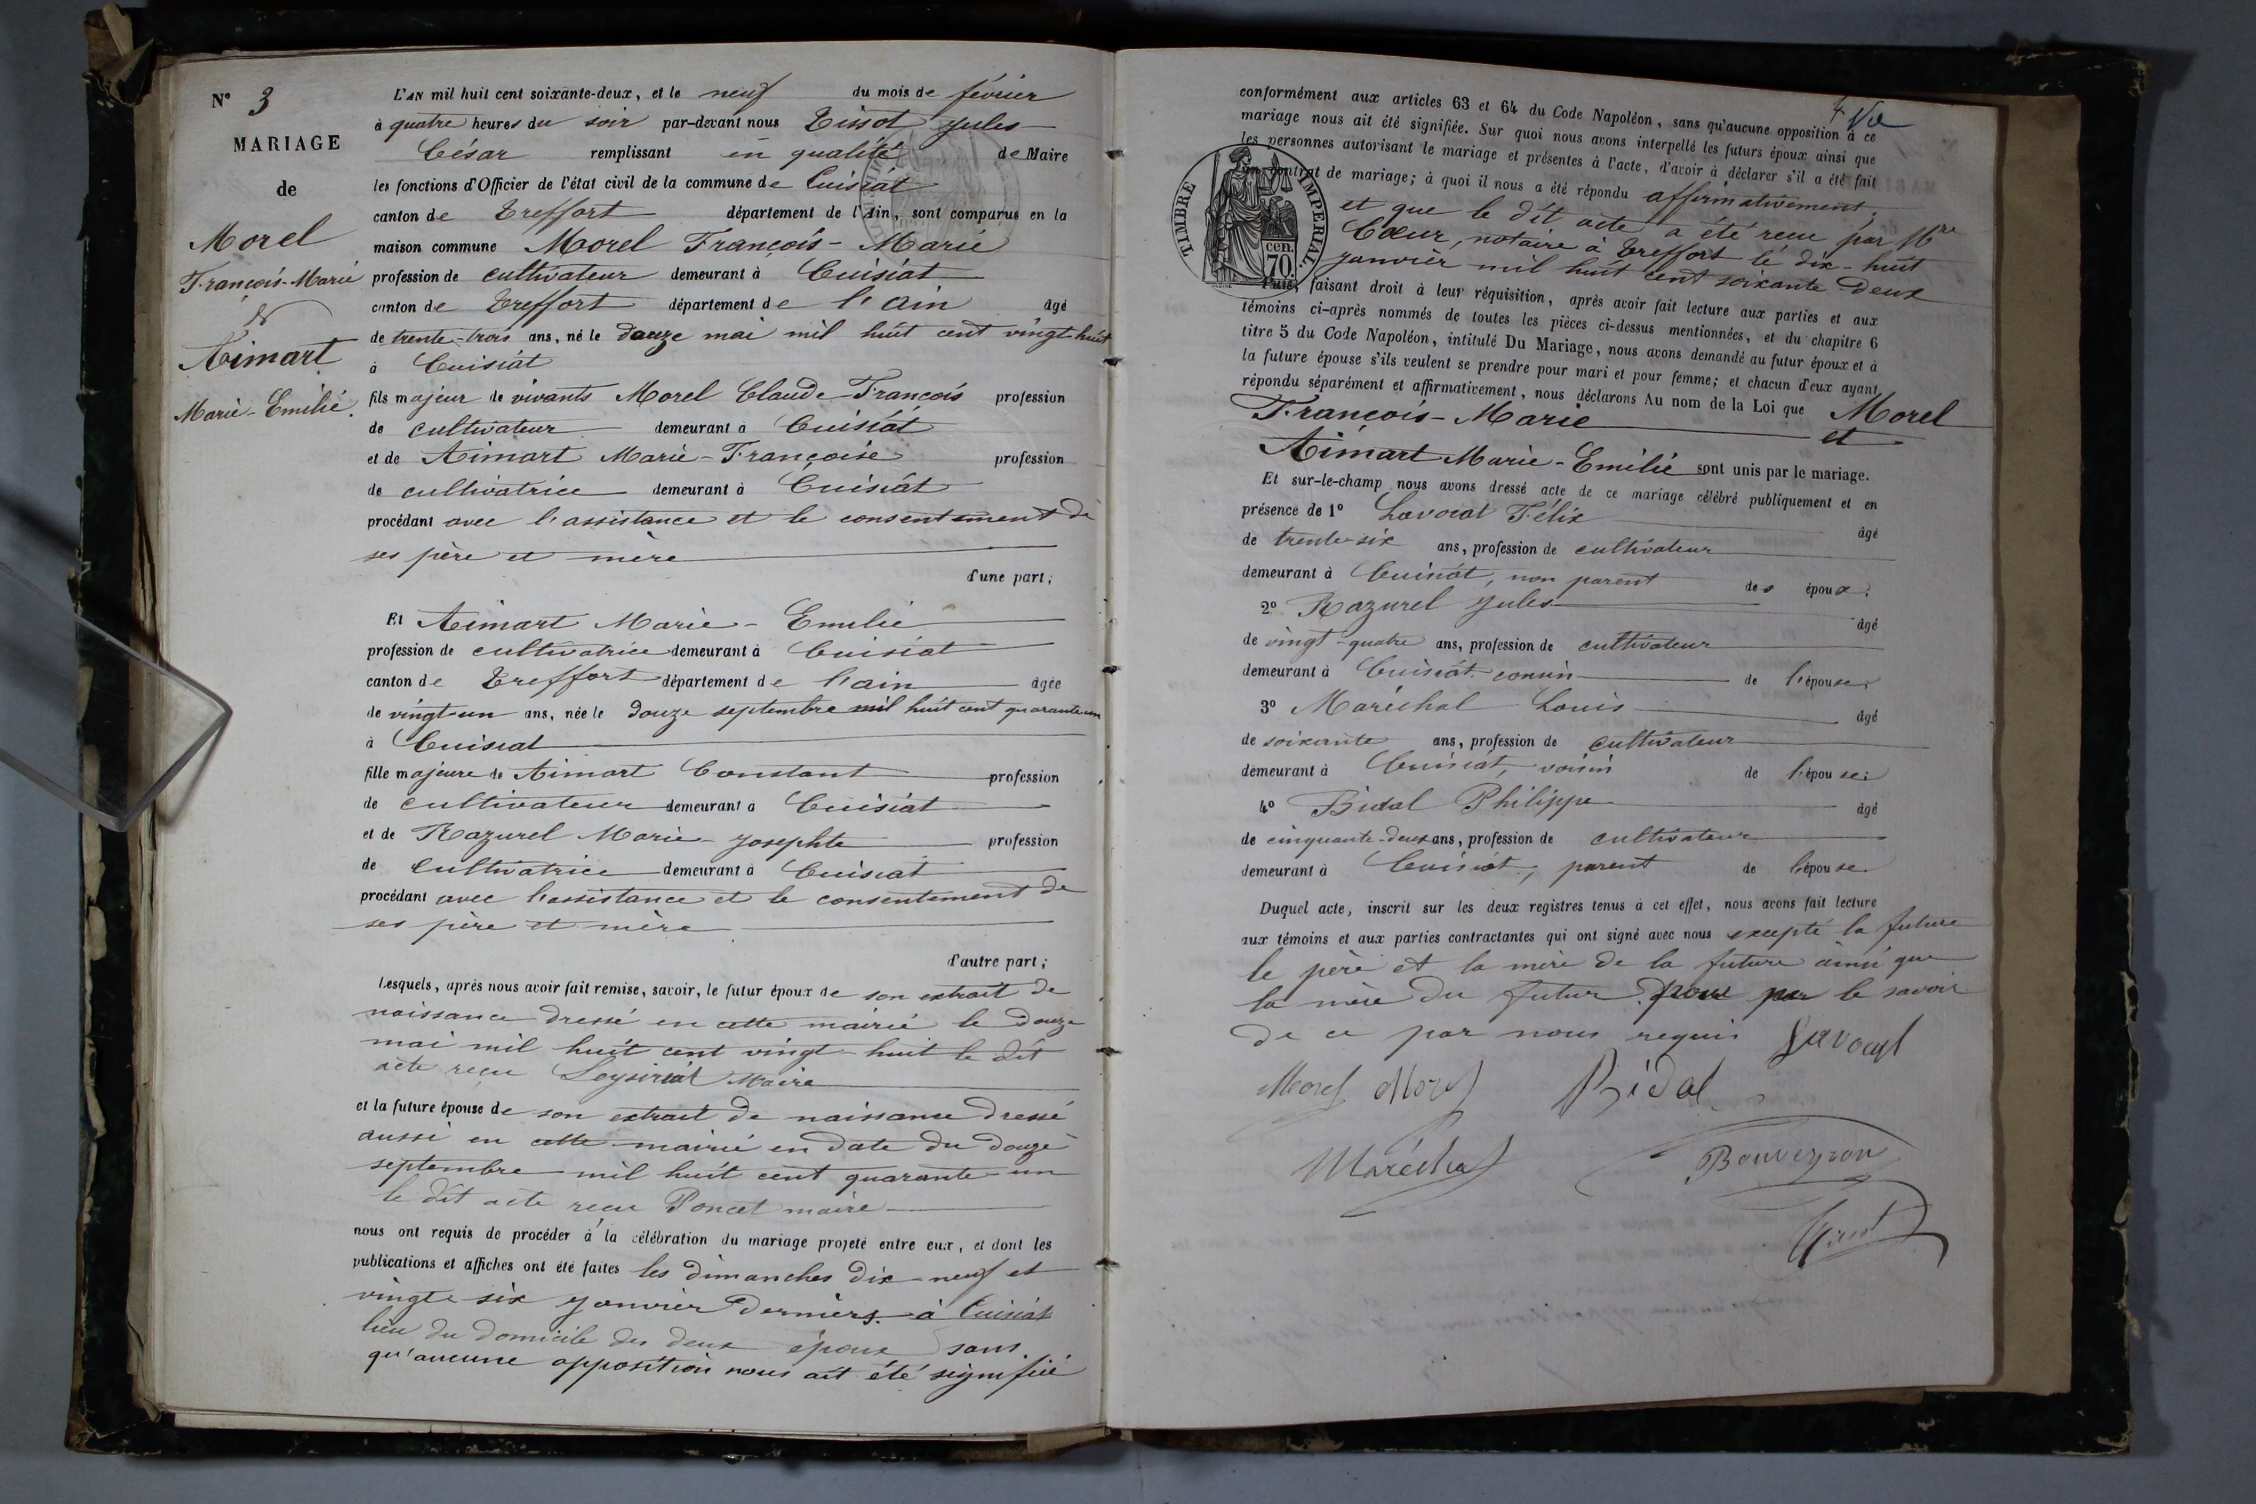 N° 3
MARIAGE
de
Morel
François-Marie
&
Aimart
Marie-Emilie.
L'AN mil huit cent soixante-deux, et le neuf du mois de février
à quatre heures du soir par-devant nous Tissot Jules
César remplissant en qualité de Maire
les fonctions d'Officier de l'état civil de la commune de Cuisiat
canton de Treffort département de l'Ain, sont comparus en la
maison commune Morel François-Marie
profession de cultivateur demeurant à Cuisiat
canton de Treffort département de l'ain âgé
de trente-trois ans, né le douze mai mil huit cent vingt-huit
à Cuisiat
fils majeur de vivants Morel Claude François profession
de cultivateur demeurant à Cuisiat
et de Aimart Marie-Françoise profession
de cultivatrice demeurant à Cuisiat
procédant avec l'assistance et le consentement de
ses père et mère
d'une part;
Et Aimart Marie-Emilie
profession de cultivatrice demeurant à Cuisiat
canton de Treffort département de l'ain âgée
de vingt un ans, née le douze septembre mil huit cent quarante un
à Cuisiat
fille majeure de Aimart Constant profession
de cultivateur demeurant à Cuisiat
et de Razurel Marie-Josephte profession
de cultivatrice demeurant à Cuisiat
procédant avec l'assistance et le consentement de
ses père et mère
d'autre part;
Lesquels, après nous avoir fait remise, savoir, le futur époux de son extrait de
naissance dressé en cette mairie le douze
mai mil huit cent vingt-huit le dit
acte reçu Maire
et la future épouse de son extrait de naissance dressé
aussi en cette mairie en date du douze
septembre mil huit cent quarante un
le dit acte reçu Poncet maire
nous ont requis de procéder à la célébration du mariage projeté entre eux, et dont les
publications et affiches ont été faites les dimanches dix-neuf et
vingt-six Janvier derniers à Cuisiat
lieu du domicile des deux époux sans
qu'aucune opposition nous ait été signifié
4
conformément aux articles 63 et 64 du Code Napoléon, sans qu'aucune opposition à ce
mariage nous ait été signifiée. Sur quoi nous avons interpellé les futurs époux ainsi que
les personnes autorisant le mariage et présentes à l'acte, d'avoir à déclarer s'il a été fait
un contrat de mariage; à quoi il nous a été répondu affirmativement,
et que le dit acte a été reçu par Mre
Cœur, notaire à Treffort le dix-huit
janvier mil huit cent soixante deux
TIMBRE IMPERIAL
70. cen.
Puis, faisant droit à leur réquisition, après avoir fait lecture aux parties et aux
témoins ci-après nommés de toutes les pièces ci-dessus mentionnées, et du chapitre 6
titre 5 du Code Napoléon, intitulé Du Mariage, nous avons demandé au futur époux et à
la future épouse s'ils veulent se prendre pour mari et pour femme; et chacun d'eux ayant
répondu séparément et affirmativement, nous déclarons Au nom de la Loi que Morel
François-Marie et
Aimart Marie-Emilie sont unis par le mariage.
Et sur-le-champ nous avons dressé acte de ce mariage célébré publiquement et en
présence de 1° Lavocat Félix âgé
de trente-six ans, profession de cultivateur
demeurant à Cuisiat, non parent des époux.
2° Razurel Jules âgé
de vingt-quatre ans, profession de cultivateur
demeurant à Cuisiat cousin de l'épouse.
3° Maréchal Louis âgé
de soixante ans, profession de cultivateur
demeurant à Cuisiat, voisin de l'épouse.
4° Bidal Philippe âgé
de cinquante-deux ans, profession de cultivateur
demeurant à Cuisiat, parent de l'épouse
Duquel acte, inscrit sur les deux registres tenus à cet effet, nous avons fait lecture
aux témoins et aux parties contractantes qui ont signé avec nous excepté la future
le père et la mère de la future ainsi que
la mère du futur pour pas le savoir
de ce par nous requis Lavocat
Morel Morel Bidal
Maréchal Bouveyron
Tissot